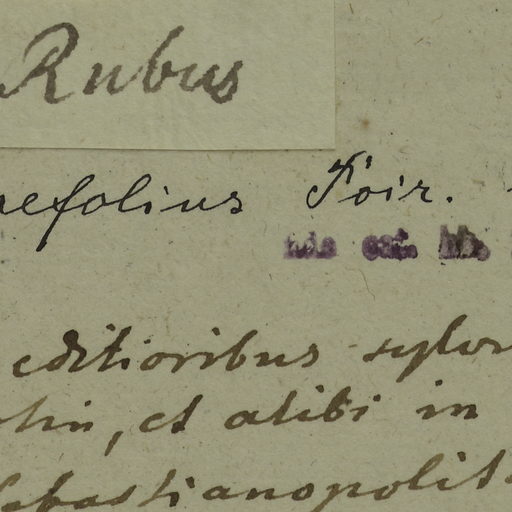 Rubus
aefolius Poir.
hb.
editioribus sylv
et alibi in
Sebastianopolit